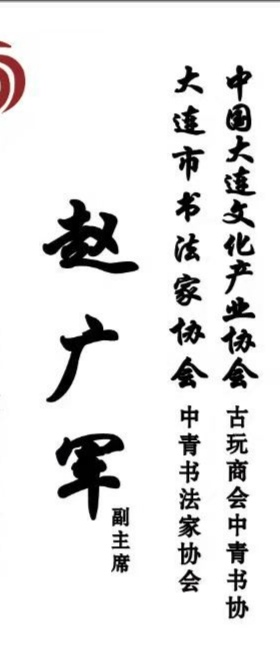 中国大连文化产业协会 古玩商会中青书协
大连市书法家协会 中青书法家协会
赵广军 副主席